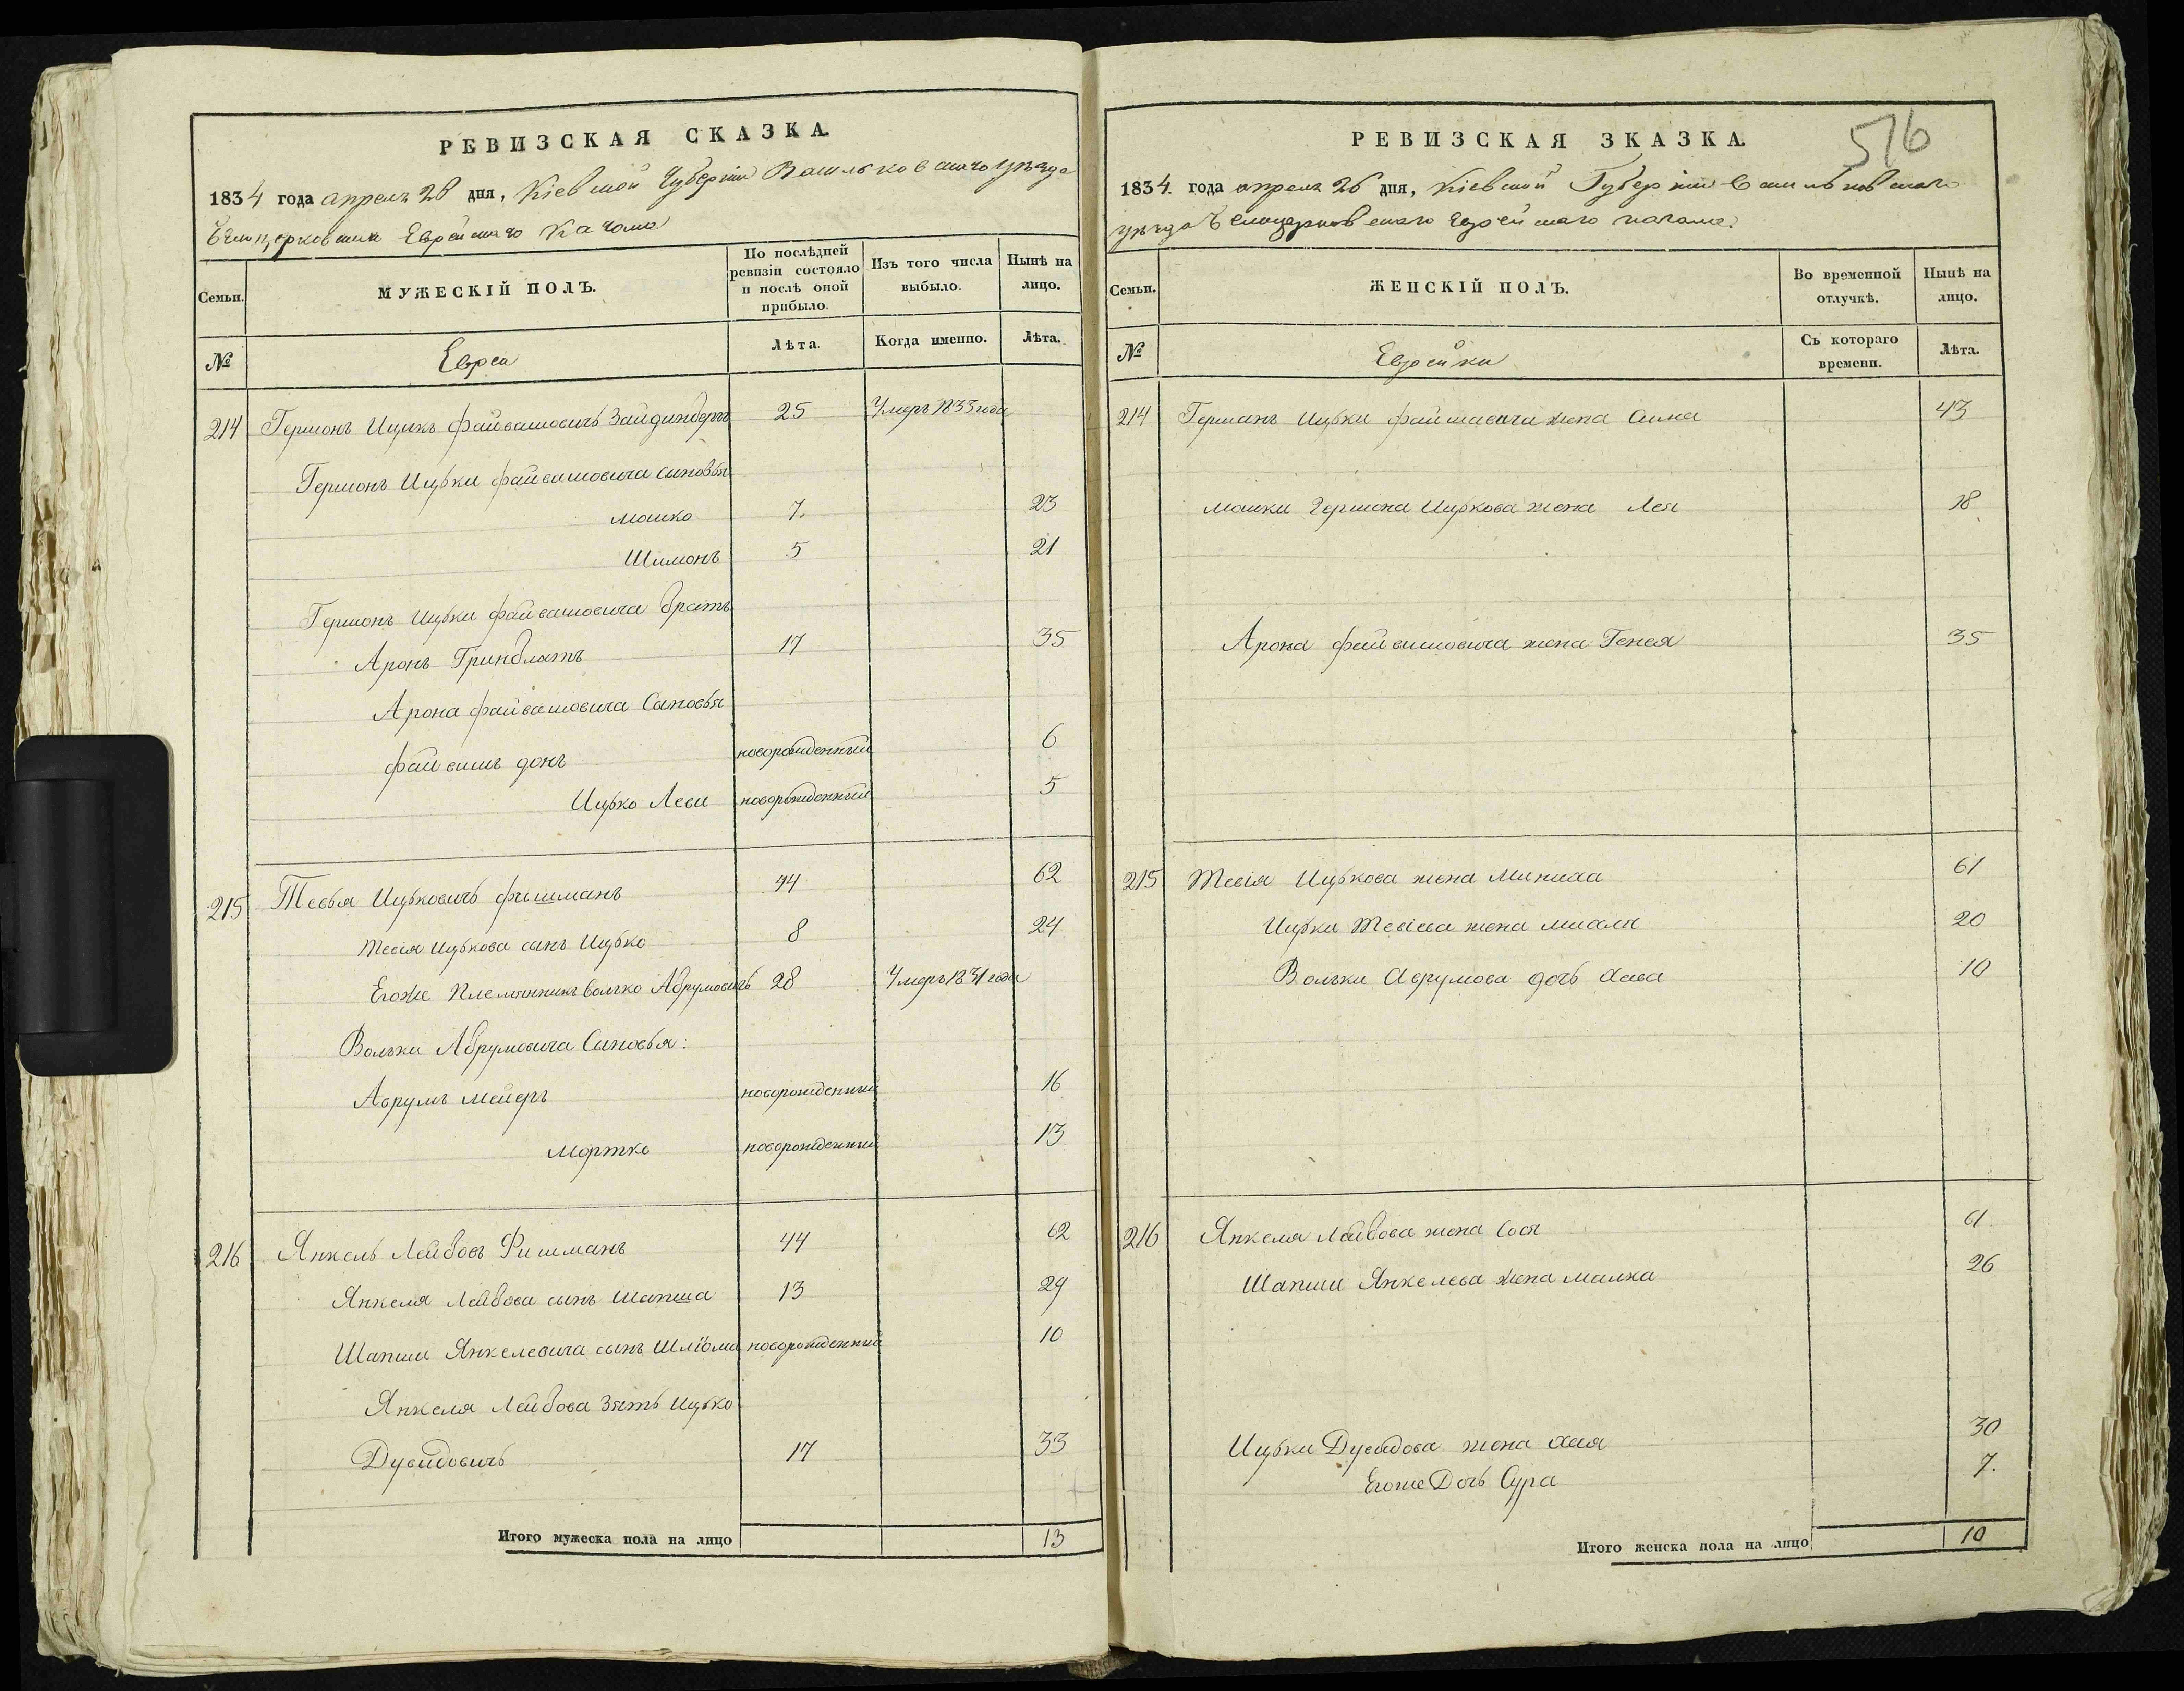 РЕВИЗСКАЯ СКАЗКА.
1834 года апреля 26 дня, Кіевской Губерніи Васильковскаго уѣзда
Бѣлоцерковскаго Еврейскаго Кагала
Семьи.
МУЖЕСКІЙ ПОЛЪ.
По послѣдней ревизіи состояло и послѣ оной прибыло.
Изъ того числа выбыло.
Нынѣ на лицо.
№
Евреи
Лѣта.
Когда именно.
Лѣта.
214 Гершонъ Ицикъ Файвишовичъ Зайдинбергъ 25 Умеръ 1833 года
Гершонъ Ицьки Файвишовича сыновья
Мошко 7. 23
Шимонъ 5 21
Гершонъ Ицьки Файвишовича братъ
Аронъ Гринблатъ 17 35
Арона Файвишовича Сыновья
Файвишъ донъ новорожденный 6
Ицько Леви новорожденный 5
215 Тевья Ицьковичъ Фишманъ 44 62
Тевія Ицькова сынъ Ицько 8 24
Егоже Племянникъ Волько Абрумовичъ 28 Умеръ 1831 года
Вольки Абрумовича Сыновья:
Аврумъ Мейеръ новорожденный 16
Мортко новорожденный 13
216 Янкель Лейбовъ Фишманъ 44 62
Янкеля Лейбова сынъ Шапша 13 29
Шапши Янкелевича сынъ Шлїома новорожденный 10
Янкеля Лейбова Зять Ицько
Дувидовичъ 17 33
Итого мужеска пола на лицо 13
РЕВИЗСКАЯ ЗКАЗКА.
516
1834. года апреля 26 дня, Кіевской Губерніи Васильковскаго
уѣзда Белоцерковскаго Еврейскаго кагала.
Семьи.
ЖЕНСКІЙ ПОЛЪ.
Во временной отлучкѣ.
Нынѣ на лицо.
№
Еврейки
Съ котораго времени.
Лѣта.
214 Гершанъ Ицьки Файшавича жена Сима 43
Мошки Гершона Ицькова жена Лея 18
Арона Файвишовича жена Генея 35
215 Тевія Ицькова жена Миниха 61
Ицьки Тевіева жена 20
Вольки Аврумова дочь Хава 10
216 Янкеля Лейбова жена Сося 61
Шапши Янкелева жена Малка 26
Ицьки Дувидова жена Хая 30
Егоже Дочь Сура 7.
Итого женска пола на лицо 10